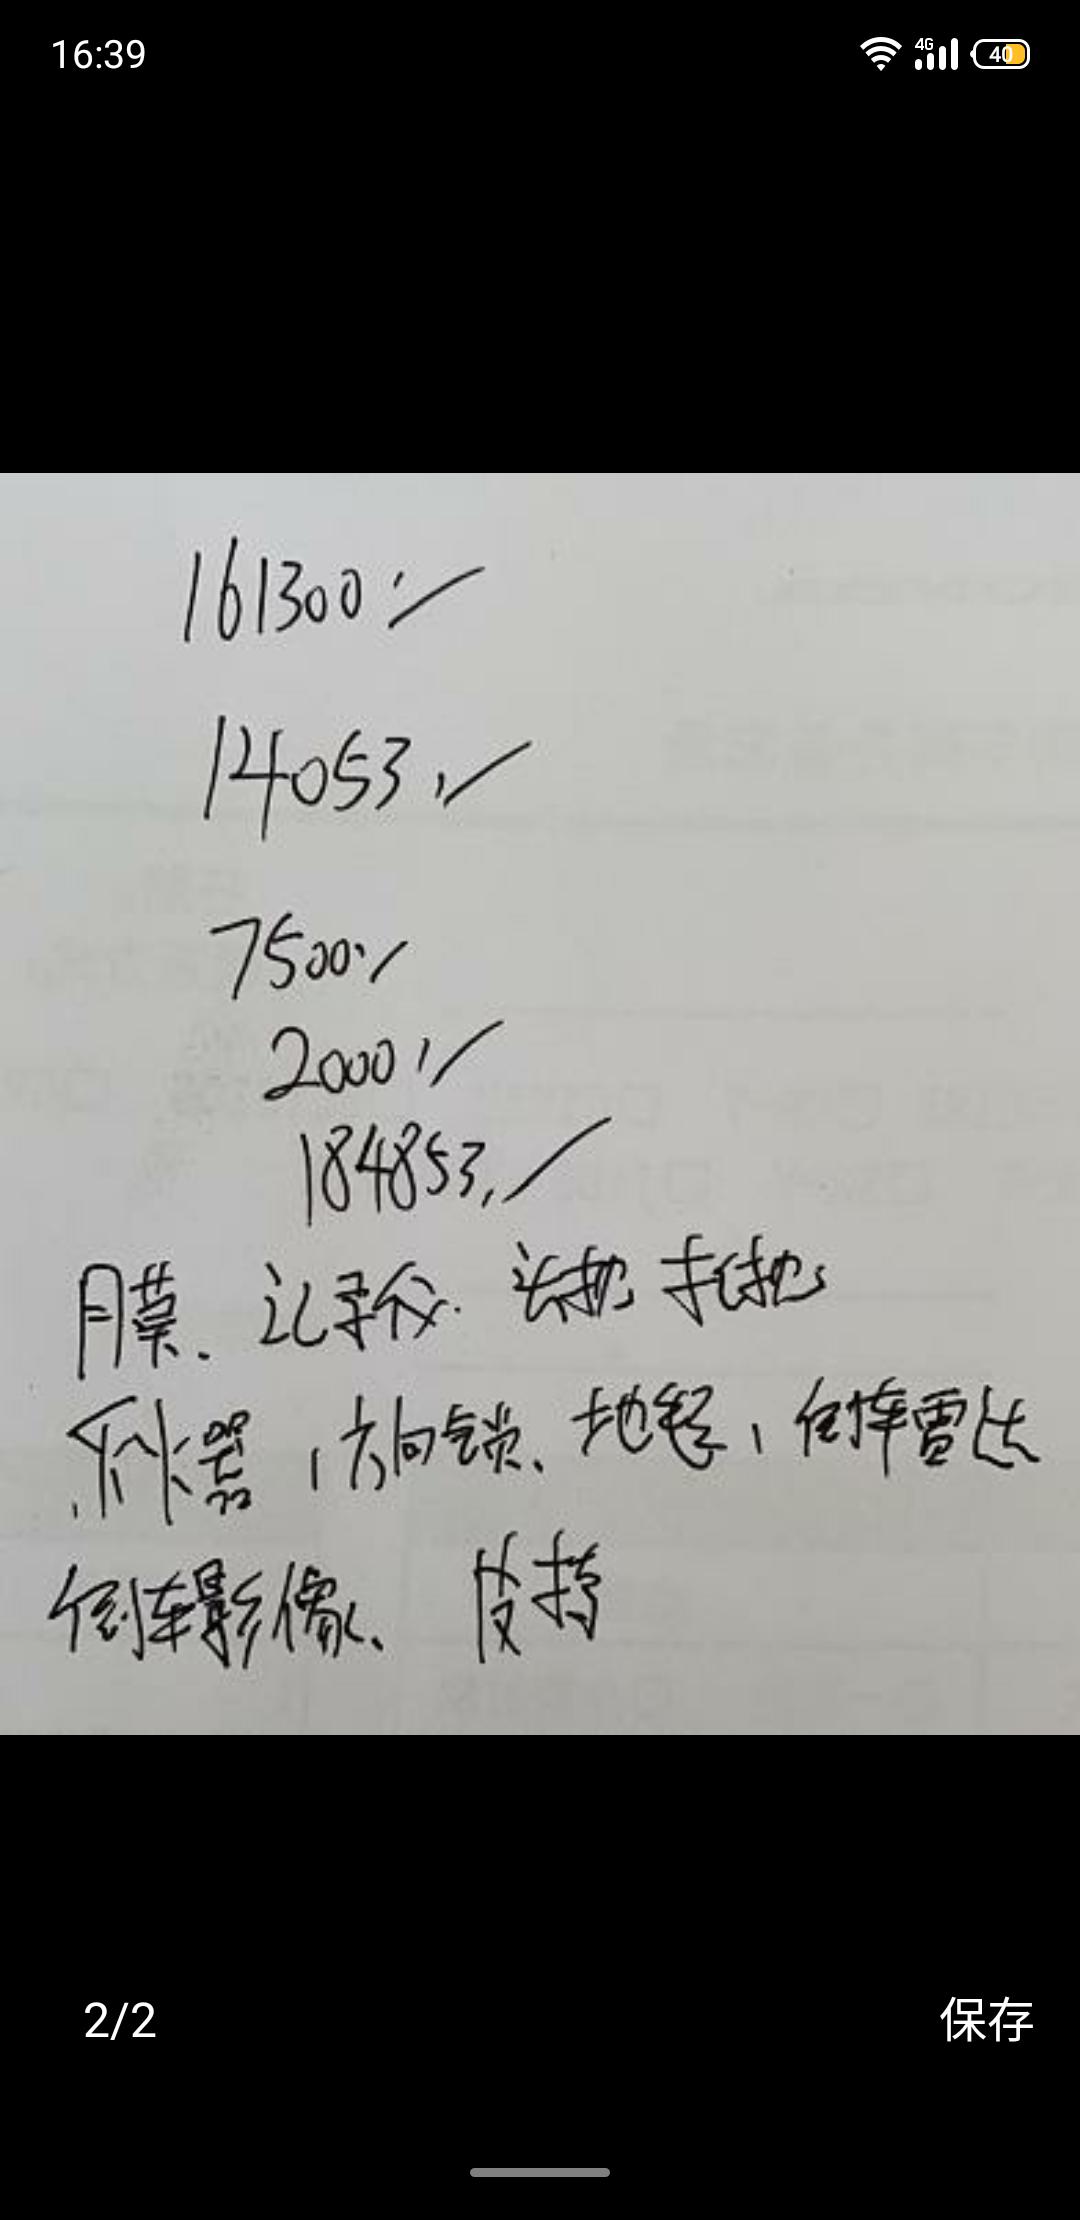 16:39
4G 40
161300
14053
7500
2000
184853
膜、记录仪
灭火器,方向锁、地毯,倒车雷达
倒车影像、皮
2/2 保存